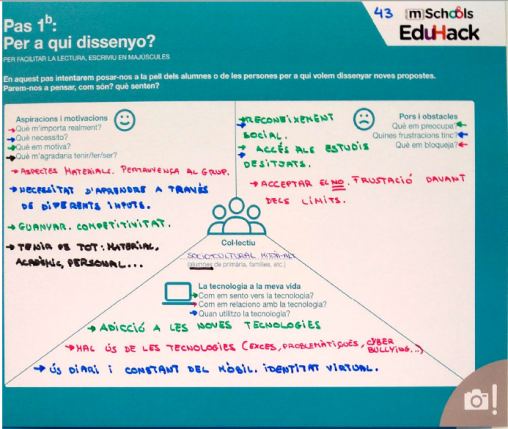 43
mSchools
EduHack
Pas 1b:
Per a qui dissenyo?
PER FACILITAR LA LECTURA, ESCRIVIU EN MAJÚSCULES
En aquest pas intentarem posar-nos a la pell dels alumnes o de les persones per a qui volem dissenyar noves propostes.
Parem-nos a pensar, com són? què senten?
Aspiracions i motivacions
Què m'importa realment?
Què necessito?
Què em motiva?
Què m'agradaria tenir/fer/ser?
ASPECTES MATERIALS. PERTANYENÇA AL GRUP.
NECESSITAT D'APRENDRE A TRAVÉS
DE DIFERENTS INPUTS.
GUANYAR. COMPETITIVITAT.
TENIR DE TOT: MATERIAL,
ACADÈMIC, PERSONAL...
Pors i obstacles
Què em preocupa?
Quines frustracions tinc?
Què em bloqueja?
RECONEIXEMENT
SOCIAL.
ACCÉS ALS ESTUDIS
DESITJATS.
ACCEPTAR EL NO. FRUSTACIÓ DAVANT
DELS LÍMITS.
Col·lectiu
SOCIOCULTURAL
(alumnes de primària, famílies, etc.)
La tecnologia a la meva vida
Com em sento vers la tecnologia?
Com em relaciono amb la tecnologia?
Quan utilitzo la tecnologia?
ADICCIÓ A LES NOVES TECNOLOGIES
MAL ÚS DE LES TECNOLOGIES (EXCÉS, PROBLEMÀTIQUES, CYBER
BULLYING...)
ÚS DIARI I CONSTANT DEL MÒBIL. IDENTITAT VIRTUAL.